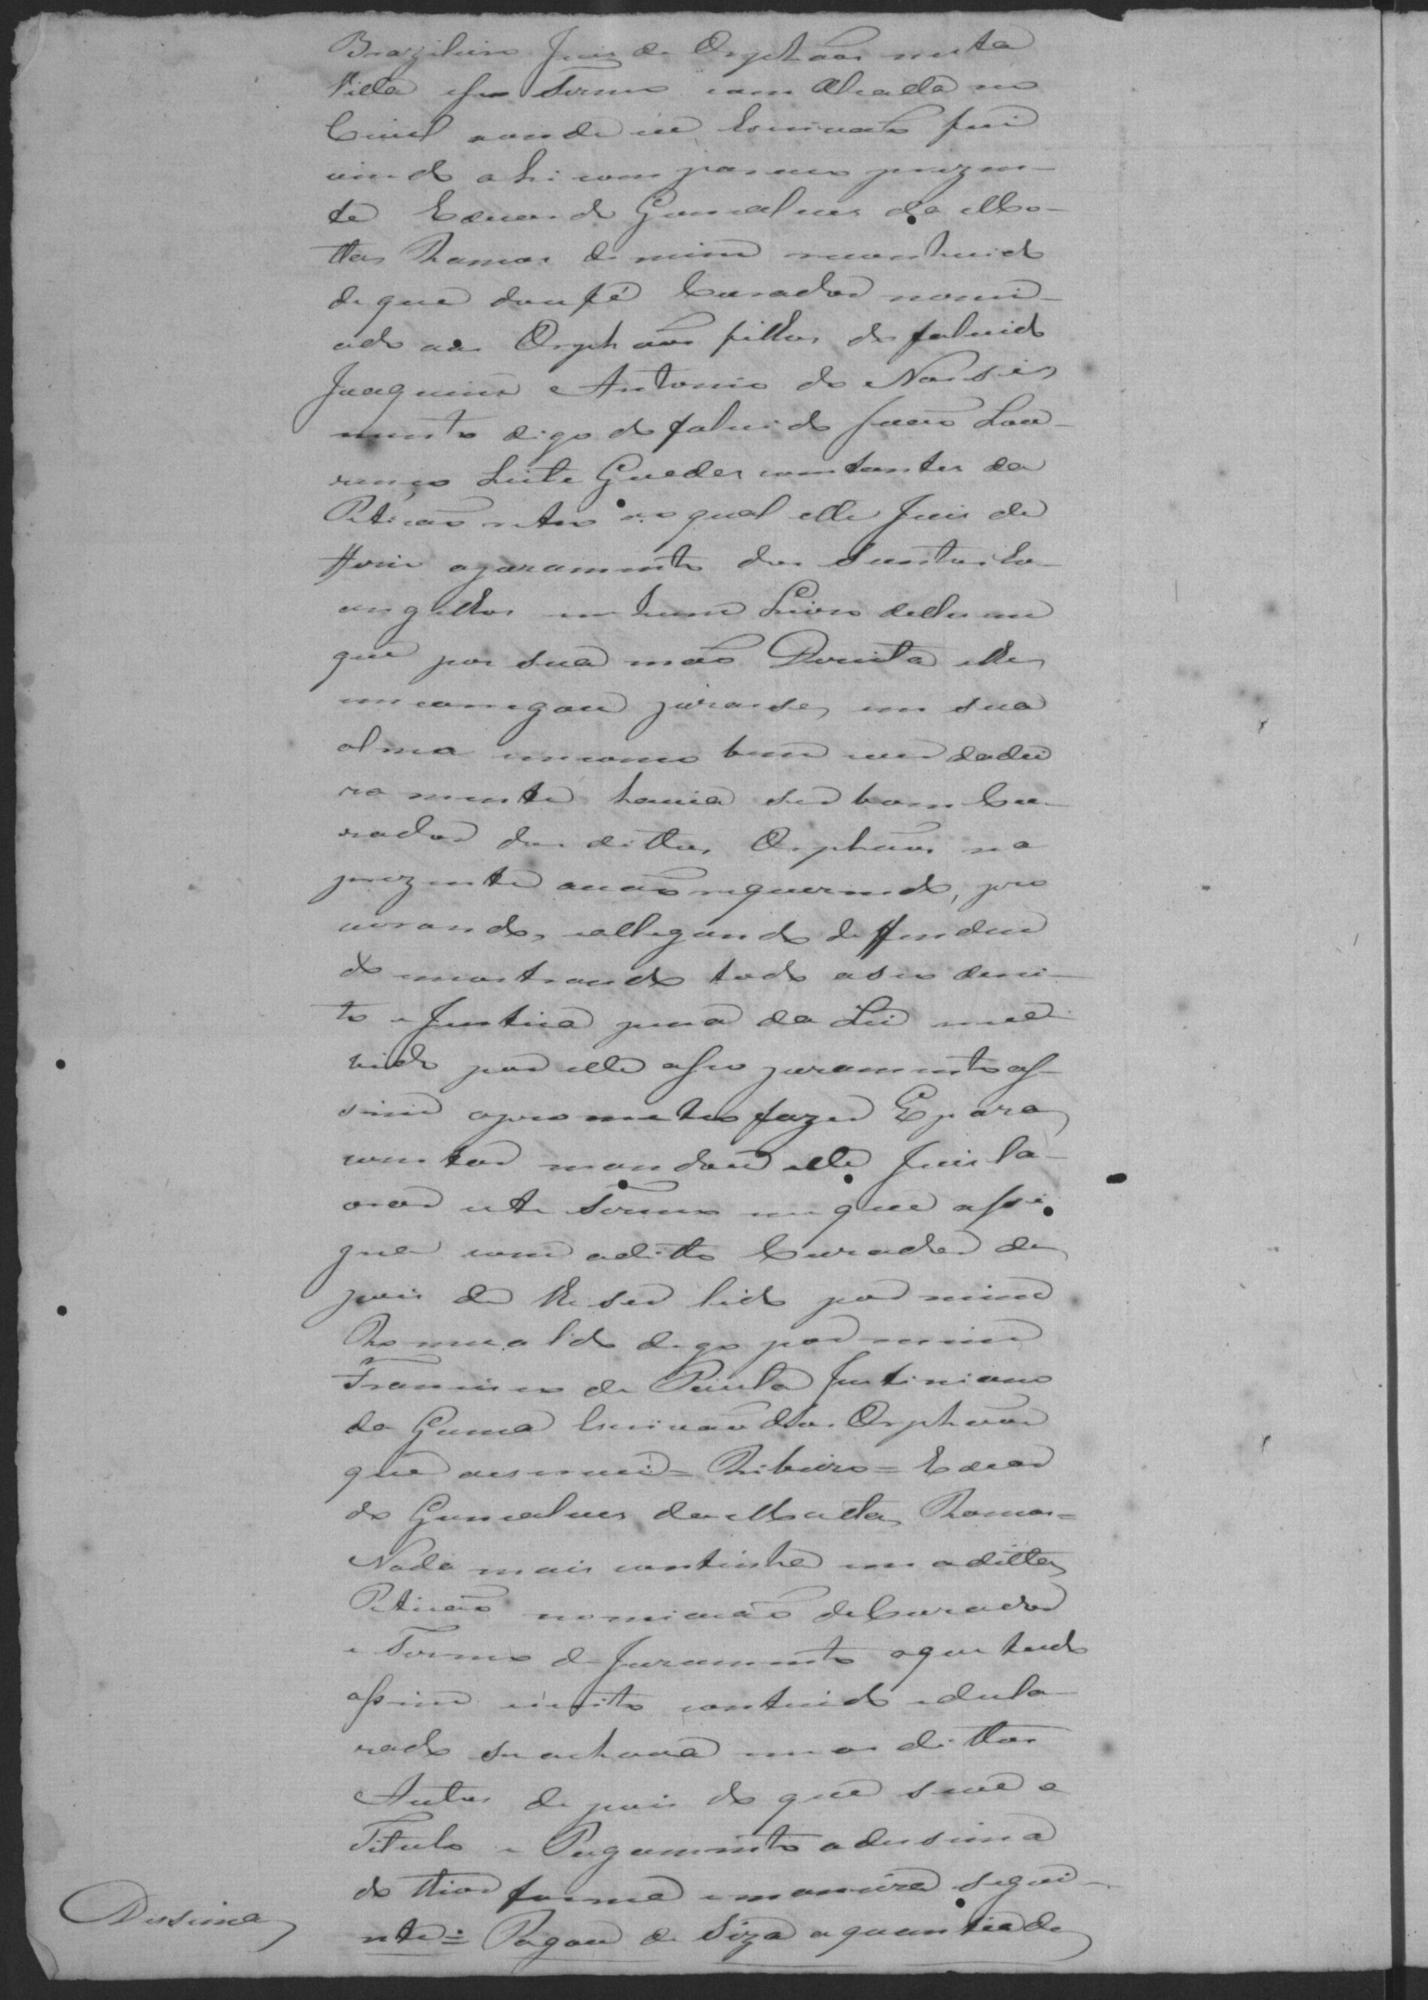 Brazileiro Juis de Orphãos nesta
Villa e seo Termo com Alçada no
Civel aonde eu Escrivão fui
vindo ahi compareceo prezen-
te Eduardo Gonçalves da Mo-
ttas Ramos de mim reconhecido
de que dou fé Curador nomi-
ado aos Orphãos filhos do falecido
Joaquim Antonio do Nassi
mento digo do falecido João Lou-
renço Leite Guedes constantes da
Petição retro no qual elle Juis de
fferio o juramento dos Santos Ev-
angelhos em hum Livro delles em
que por sua mão Direita e lhe
encarregou jurasse em sua
alma em como bem verdadei
ramente havia ser bom Cu-
rador dos dittos Orphãos na
prezente aução requerendo, pro
curando, allegando deffenden
do mostrando todo o seo derei-
to e Justiça pena da Lei rece
bido por elle o seo juramento as-
sim o prometteo fazer E para
constar mandou elle Juis la-
vrar este Termo em que assi
gna com o ditto Curador de
pois de lhe ser lido por mim
Romualdo digo por mim
Francisco de Paula Justiniano
da Gama Escrivão dos Orphãos
que escrevi = Ribeiro = Eduar
do Gonçalves da Motta Ramos =
Nada mais continha em a ditta
Petição nomiação de Curador
e Termo de Juramento o que tudo
assim escrito contheudo e decla-
rado se achava em os dittos
Autos depois do que se ve o
Titulo e Pagamento a dessima
do thior forma e maneira segui-
nte = Pagou de Siza a quantia de
Dessima